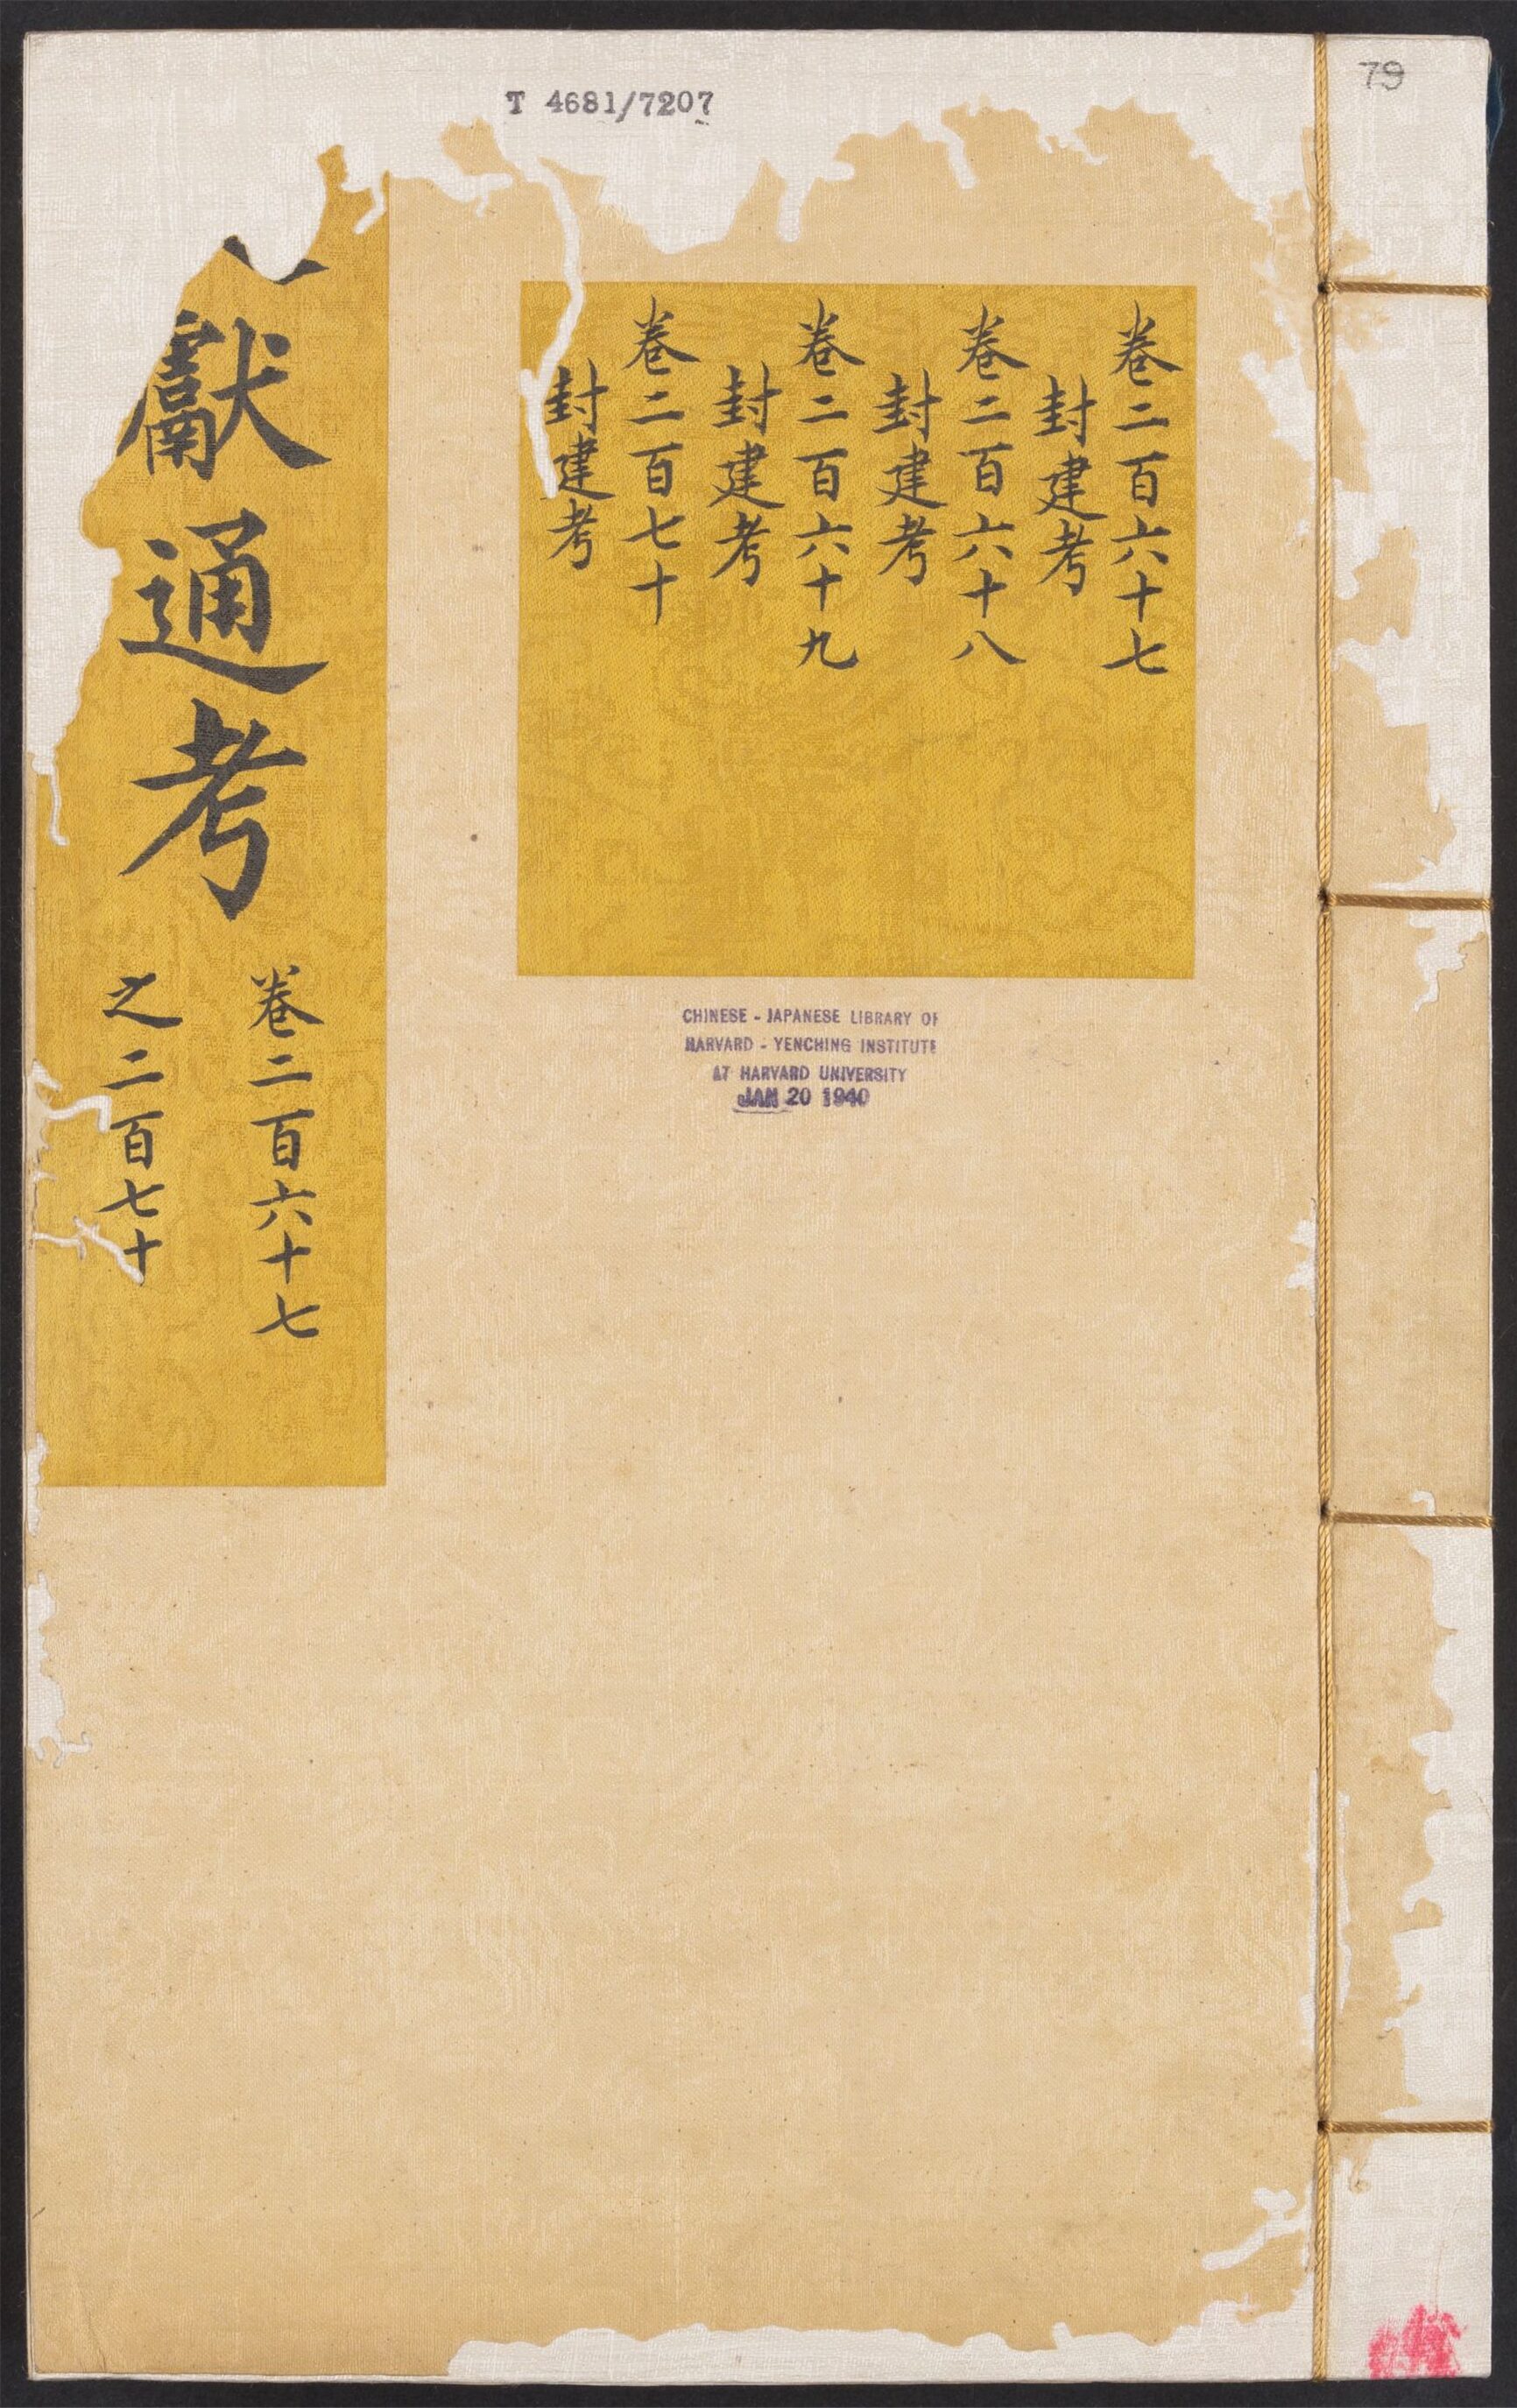 79
T 4681/7207
卷二百六十七
封建考
卷二百六十八
封建考
卷二百六十九
封建考
卷二百七十
封建考
獻通考
卷二百六十七
之二百七十
CHINESE - JAPANESE LIBRARY OF
HARVARD - YENCHING INSTITUTE
AT HARVARD UNIVERSITY
JAN 20 1940